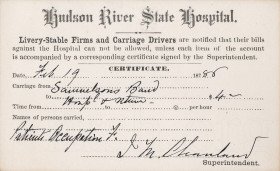 Hudson River State Hospital.
Livery-Stable Firms and Carriage Drivers are notified that their bills
against the Hospital can not be allowed, unless each item of the account
is accompanied by a corresponding certificate signed by the Superintendent.
CERTIFICATE.
Date Feb 19 1886
Carriage from
Hosp & return 4
Time from to @ per hour
Names of persons carried,
Patients Occupation
Superintendent.